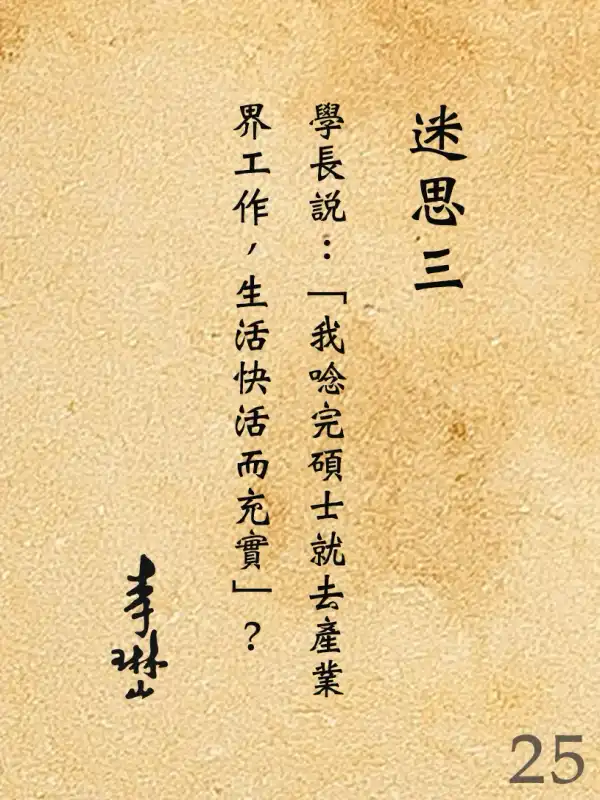 迷思三
學長說：「我唸完碩士就去產業
界工作，生活快活而充實」？
李琳山
25